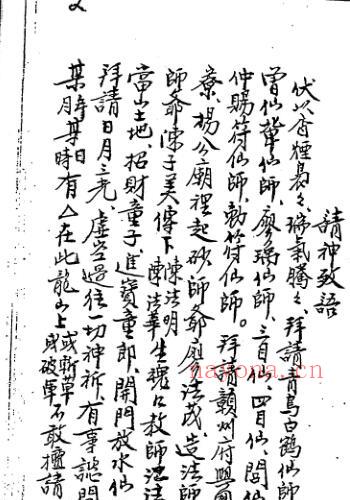 請神致語
伏以香煙裊々、瑞氣騰々、拜請青鳥白鶴仙師
曾仙龔仙師、廖瑀仙師、三目仙、四目仙、閭伯
仲賜符仙師、勅符仙師。拜請贛州府興
寮、楊公廟裡起砂師爺廖法茂、造法師
師爺陳子美傳下陳法明 陳法華生魂口教師
當山土地、招財童子、進寶童郎、開門放水仙
拜請日月三光、虛空過往一切神祇、有事諕門
某年某月某日時有△在此龍山上或斬草或破軍不敢擅請
nayona.cn